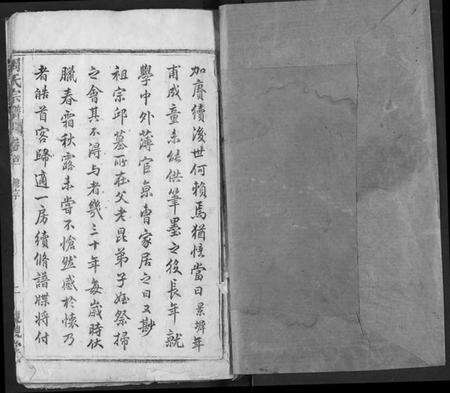 加賡續後世何賴焉猶憶當日景墀年
甫成童未能供筆墨之役長年就
學中外薄宦京曹家居之日又尠
祖宗邱墓所在父老昆弟子姪祭掃
之會其不得與者幾三十年每歲時伏
臘春霜秋露未嘗不愴然感於懷乃
者皓首客歸適一房續修譜牒將付
劉氏宗譜 卷首 序 二